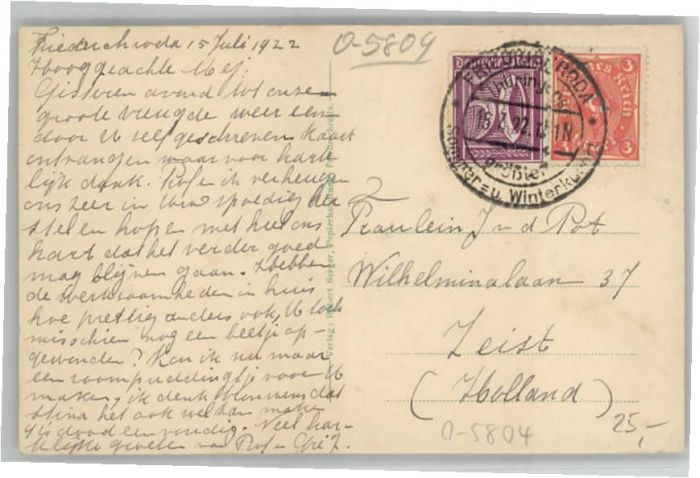 Friedrichroda 15 Juli 1922
Hooggeachte Mej.
Gisteren avond tot onze
groote vreugde weer een
door U zelf geschreven kaart
ontvangen waarvoor harte
lijk dank. Prof en ik verheugen
ons zeer in Uw spoedig her
stel en hopen met heel ons
hart dat het verder goed
mag blijven gaan. Hebben
de werkzaamheden in huis
hoe prettig anders ook, U toch
misschien nog een beetje op-
gewonden? Kon ik nu maar
een roompuddingtje voor U
maken, ik denk trouwens dat
Stina het ook wel kan maken
is dood eenvoudig. Veel har-
telijke groeten van Prof en
0-5809
FRIEDRICHRODA
Thüringens
größter
Sommer- u. Winterkurort
Deutsches Reich
3
Verlag: Robert Berger, Papierhandlung, Friedrichroda.
Fraulein J v d Pot
Wilhelminalaan 37
Zeist
(Holland)
0-5804
25,-